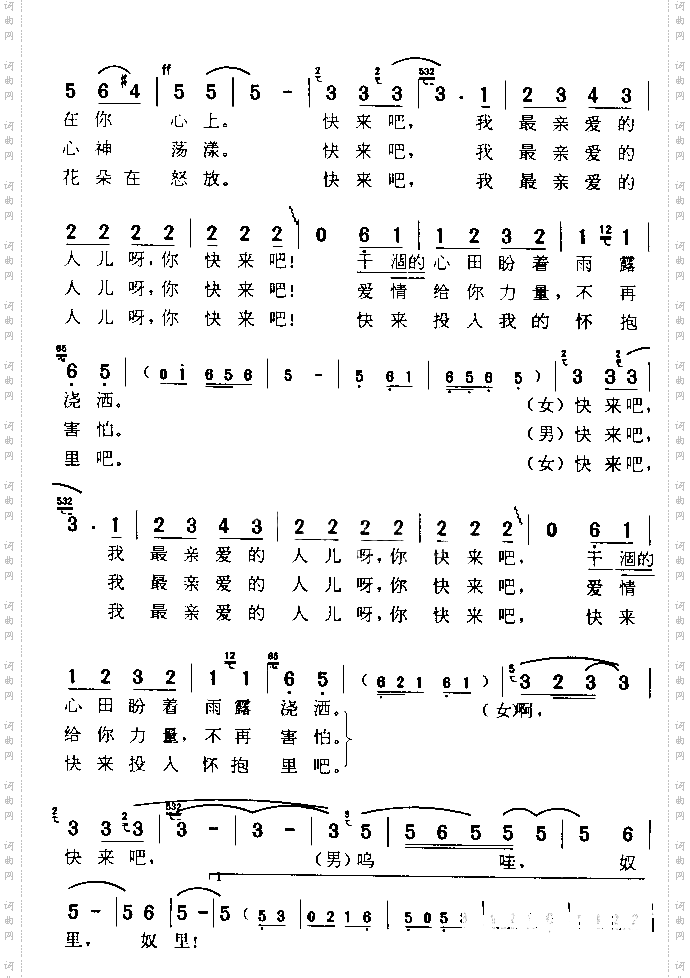 5 6 #4 | 5 5 | 5 - | 3 3 3 | 3 . 1 | 2 3 4 3 |
在你 心上。 快来吧， 我 最亲爱的
心神 荡漾。 快来吧， 我 最亲爱的
花朵在怒放。 快来吧， 我 最亲爱的
2 2 2 2 | 2 2 2 | 0 6 1 | 1 2 3 2 | 1 1 |
人儿呀，你 快来吧！ 干涸的心田盼着 雨露
人儿呀，你 快来吧！ 爱情给你力量，不再
人儿呀，你 快来吧！ 快来投入我的怀抱
6 5 | ( 0 i 6 5 6 | 5 - | 5 6 1 | 6 5 6 5 ) | 3 3 3 |
浇洒。 （女）快来吧，
害怕。 （男）快来吧，
里吧。 （女）快来吧，
3 . 1 | 2 3 4 3 | 2 2 2 2 | 2 2 2 | 0 6 1 |
我 最亲爱的 人儿呀，你 快来吧， 干涸的
我 最亲爱的 人儿呀，你 快来吧， 爱情
我 最亲爱的 人儿呀，你 快来吧， 快来
1 2 3 2 | 1 1 | 6 5 | ( 6 2 1 6 1 ) | 3 3 2 3 3
心田盼着 雨露 浇洒。 （女）啊，
给你力量，不再 害怕。
快来投入 怀抱 里吧。
3 3 3 | 3 - | 3 - | 3 5 | 5 6 5 5 5 | 5 6 |
快来吧， （男）呜 哇， 奴
5 - | 5 6 | 5 - | ( 5 3 | 0 2 1 6 | 5 0 5
里， 奴里！
词曲网